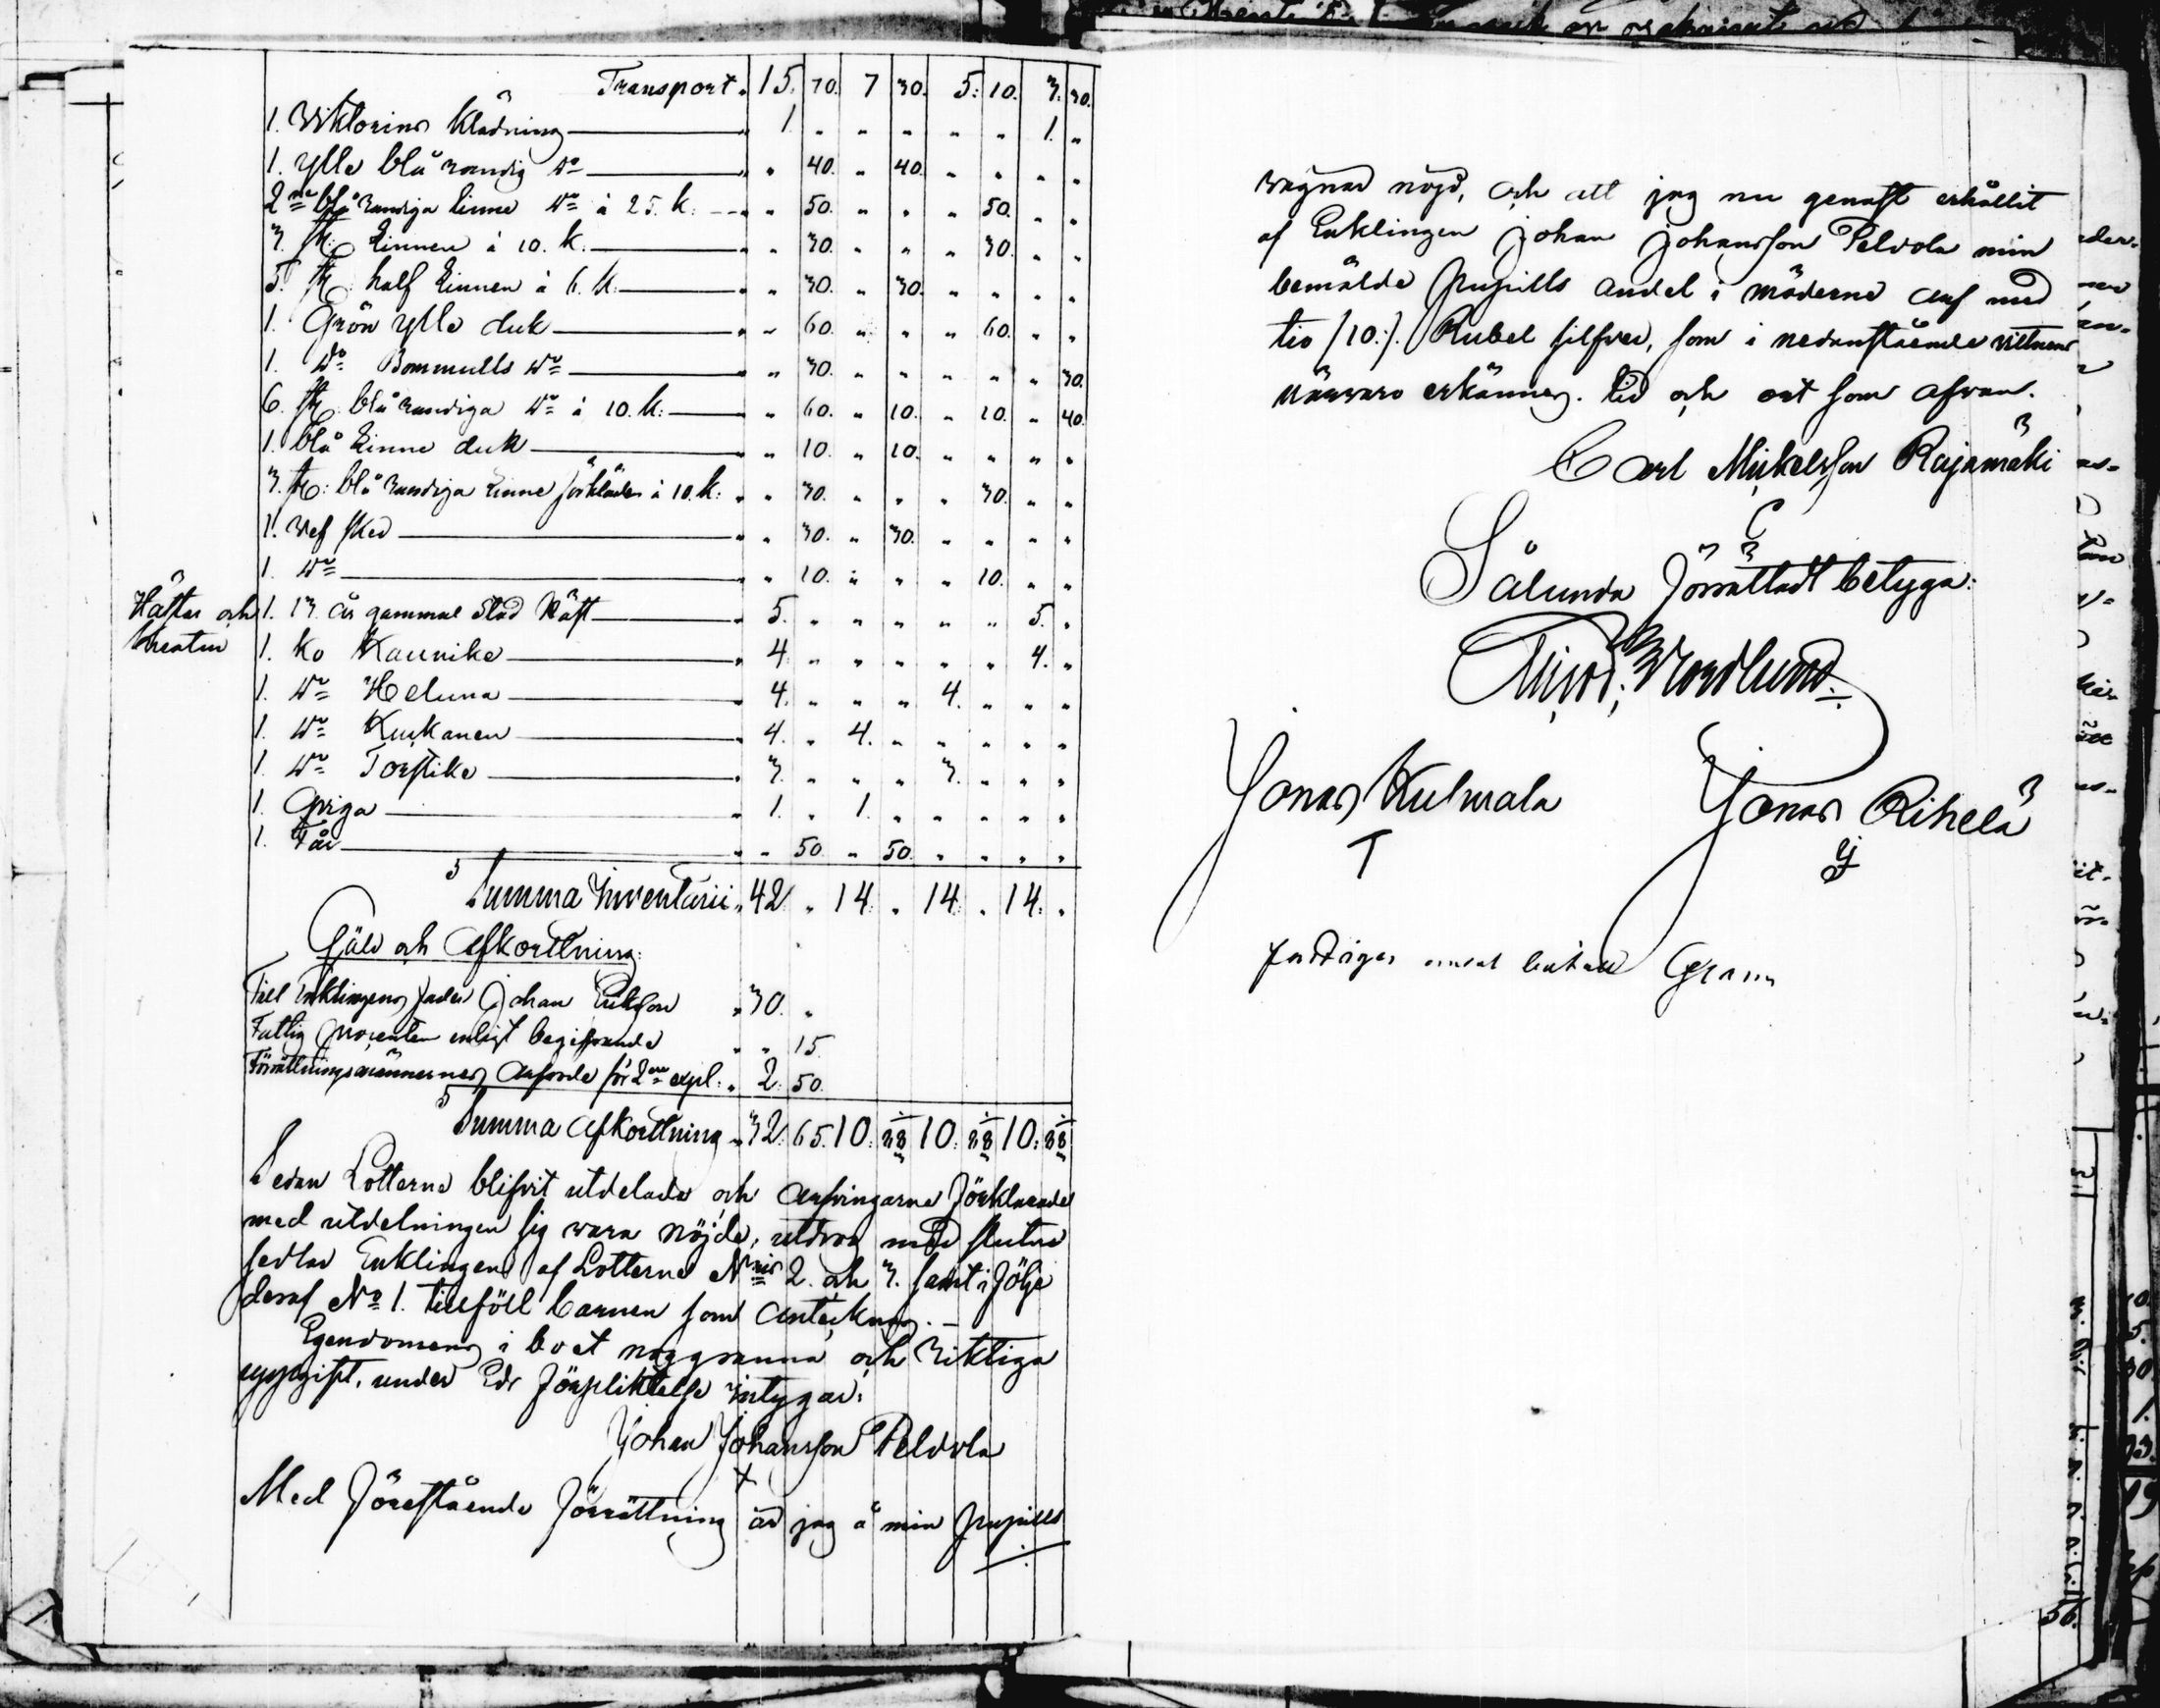 Transport. 15. 70. 7 30. 5. 10. 3. 30.
1. Wiktorins Klädning " 1. " " " " " 1. "
1. ylle blå randig Do " " 40. " 40. " " " "
2ne blå randiga Linne Do à 25. k: " " 50. " " " 50. " "
3. st: Linnen à 10. k. " " 30. " " " 30. " "
5. st: half Linnen à 6. k: " " 30. " 30. " " " "
1. Grön ylle duk " " 60. " " " 60. " "
1. Do Bommulls Do " " 30. " " " " " 30.
6. st: blå randiga Do à 10. k: " " 60. " 10. " 10. " 40.
1. blå Linne duk " " 10. " 10. " " " "
3. st: blå randiga Linne förkläden à 10. k: " " 30. " " " 30. " "
1. Wef sked " " 30. " 30. " " " "
1. Do " " 10. " " " 10. " "
Hästar och 1. 13 år gammal Stod Häst " 5. " " " " " 5. "
Kreatur 1. Ko Kaunike " 4. " " " " " 4. "
1. Do Heluna " 4. " " " 4. " " "
1. Do Kuukanen " 4. " 4. " " " " "
1. Do Torstike " 3. " " " 3. " " "
1. Qviga " 1. " 1. " " " " "
1. Får " " 50. " 50. " " " "
Summa Inventarii " 42. " 14. " 14. " 14. "
Gäld och Afkortning:
Till Enklingens fader Johan Erikson " 30. "
Fattig procenten enligt begifvande " " 15.
Förrättningsmännernes arfvode för 2ne expl: " 2. 50.
Summa Afkortning " 32. 65. 10. 88 10. 88 10. 88
Sedan Lotterna blifvit utdelade och arfvingarne förklarade
med utdelningen sig wara nöjde, utdrog med slutne
sedlar Enklingen af Lotterne Nris 2. och 3. samt i följe
deraf No 1. tillföll barnen som anteknas. –
Egendomens i boet noggranna och riktiga
uppgift, under Eds förpliktelse intygar:
Johan Johansson Peldola
+
Med förestående förrättning är jag å min pupills
wägnar nöjd, och att jag nu genast erhållit
af Enklingen Johan Johansson Peldola min
bemälde pupills andel i möderne arf med
tio /10:/. Rubel silfver, som i nedanstående wittnens
närvaro erkännes. tid och ort som ofvan.
Carl Mickelsson Rajamäki
C
Sålunda förrättadt betyga:
Nordlund.
Jonas Kulmala Jonas Rihelä
T